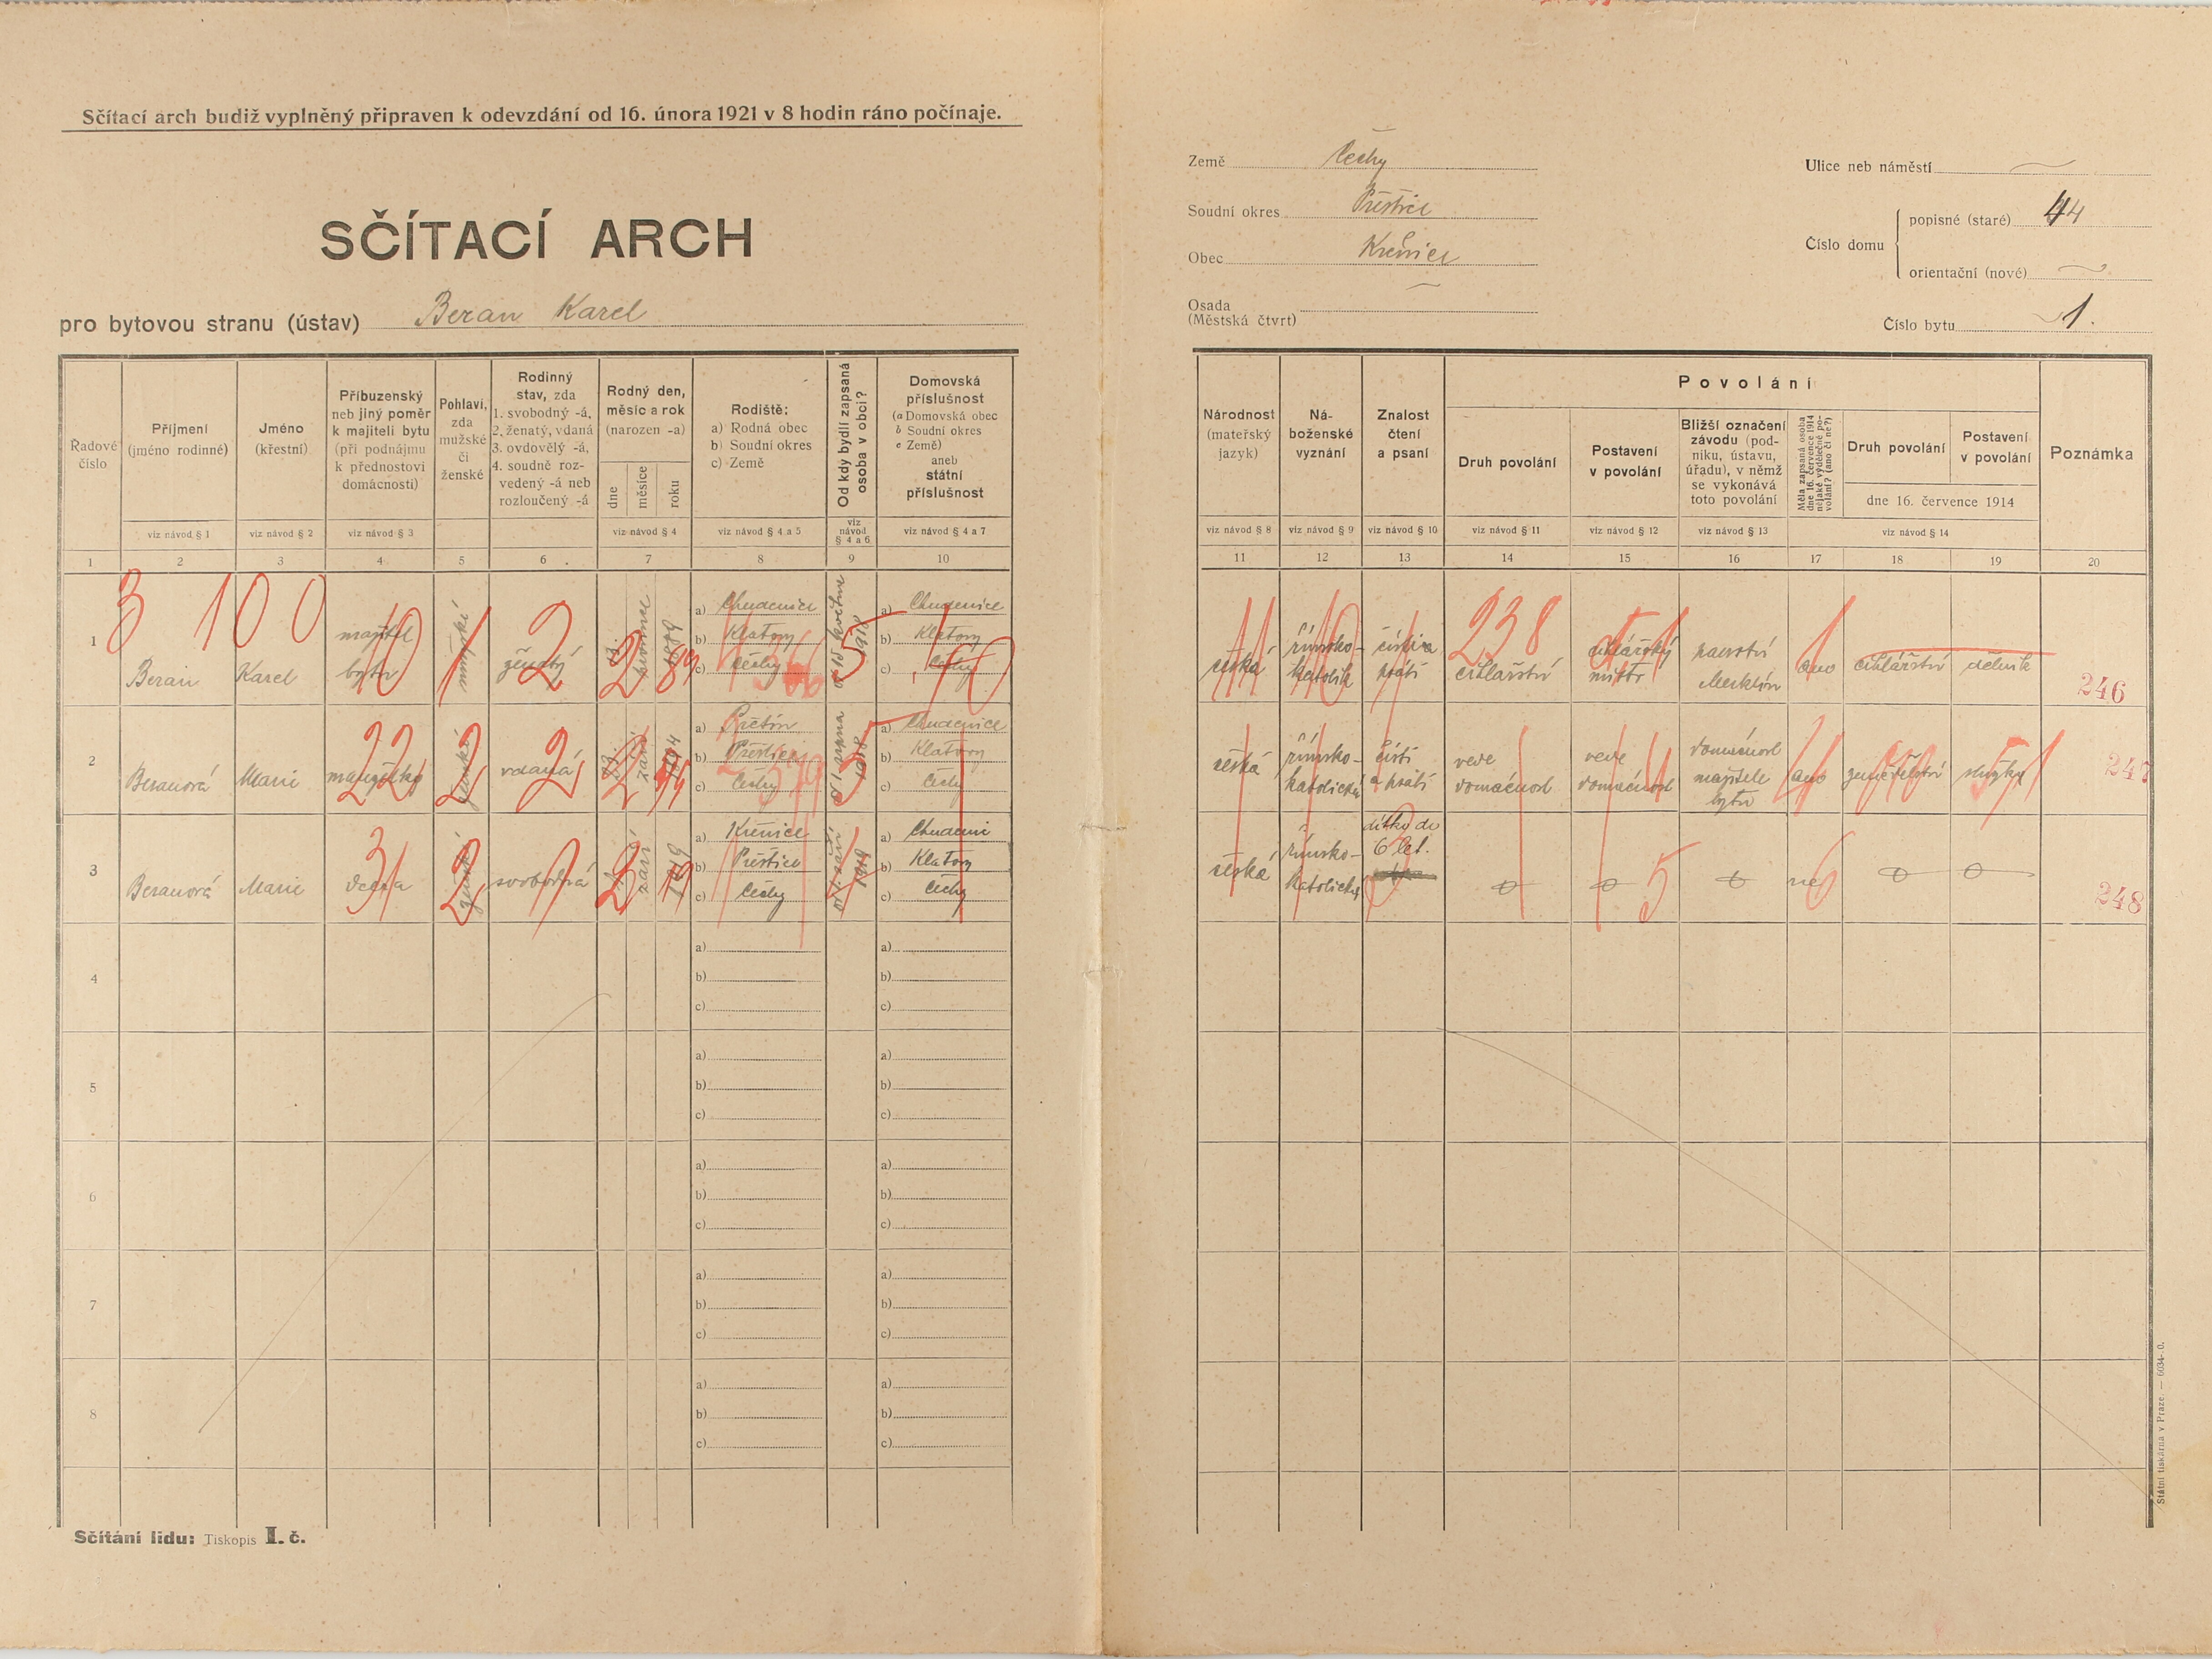 Sčítací arch budiž vyplněný připraven k odevzdání od 16. února 1921 v 8 hodin ráno počínaje.
SČÍTACÍ ARCH
pro bytovou stranu (ústav) Beran Karel
Země Čechy
Soudní okres Přeštice
Obec Křenice
Osada
(Městská čtvrť)
Ulice neb náměstí
Číslo domu
popisné (staré) 44
orientační (nové)
Číslo bytu 1.
Řadové číslo
Příjmení (jméno rodinné)
Jméno (křestní)
Příbuzenský neb jiný poměr k majiteli bytu (při podnájmu k přednostovi domácnosti)
Pohlaví, zda mužské či ženské
Rodinný stav, zda 1. svobodný -á, 2. ženatý, vdaná 3. ovdovělý -á, 4. soudně rozvedený -á neb rozloučený -á
Rodný den, měsíc a rok (narozen -a)
dne měsíce roku
Rodiště: a) Rodná obec b) Soudní okres c) Země
Od kdy bydlí zapsaná osoba v obci?
Domovská příslušnost (a Domovská obec b Soudní okres c Země) aneb státní příslušnost
Národnost (mateřský jazyk)
Náboženské vyznání
Znalost čtení a psaní
Povolání
Druh povolání
Postavení v povolání
Bližší označení závodu (podniku, ústavu, úřadu), v němž se vykonává toto povolání
Měla zapsaná osoba dne 16. července 1914 nějaké výdělečné povolání? (ano či ne?)
Druh povolání
Postavení v povolání
dne 16. července 1914
Poznámka
viz návod § 1 viz návod § 2 viz návod § 3 viz návod § 4 viz návod § 4 a 5 viz návod § 4 a 6 viz návod § 4 a 7
viz návod § 8 viz návod § 9 viz návod § 10 viz návod § 11 viz návod § 12 viz návod § 13 viz návod § 14
1 2 3 4 5 6 7 8 9 10
11 12 13 14 15 16 17 18 19 20
3 100
1 Beran Karel majitel bytu mužské ženatý 1889
a) Chudenice b) Klatovy c) Čechy
a) Chudenice b) Klatovy c) Čechy
česká římsko-katolík čísti a psáti
238
cihlářství cihlářský mistr panství Merklín ano cihlářství dělník
246
2 Beranová Marie manželka ženské vdaná září
b) Přeštice c) Čechy
a) Chudenice b) Klatovy c) Čechy
česká římsko-katolická čísti a psáti vede domácnost vede domácnost domácnost majitele bytu ano zemědělství služka
247
3 Beranová Marie dcera ženské svobodná září 1919
a) Křenice b) Přeštice c) Čechy
a) Chudeni b) Klatovy c) Čechy
česká římsko-katolická dítko do 6 let. ne
248
4 a) b) c) a) b) c)
5 a) b) c) a) b) c)
6 a) b) c) a) b) c)
7 a) b) c) a) b) c)
8 a) b) c) a) b) c)
Sčítání lidu: Tiskopis I. č.
Státní tiskárna v Praze. — 6034-0.